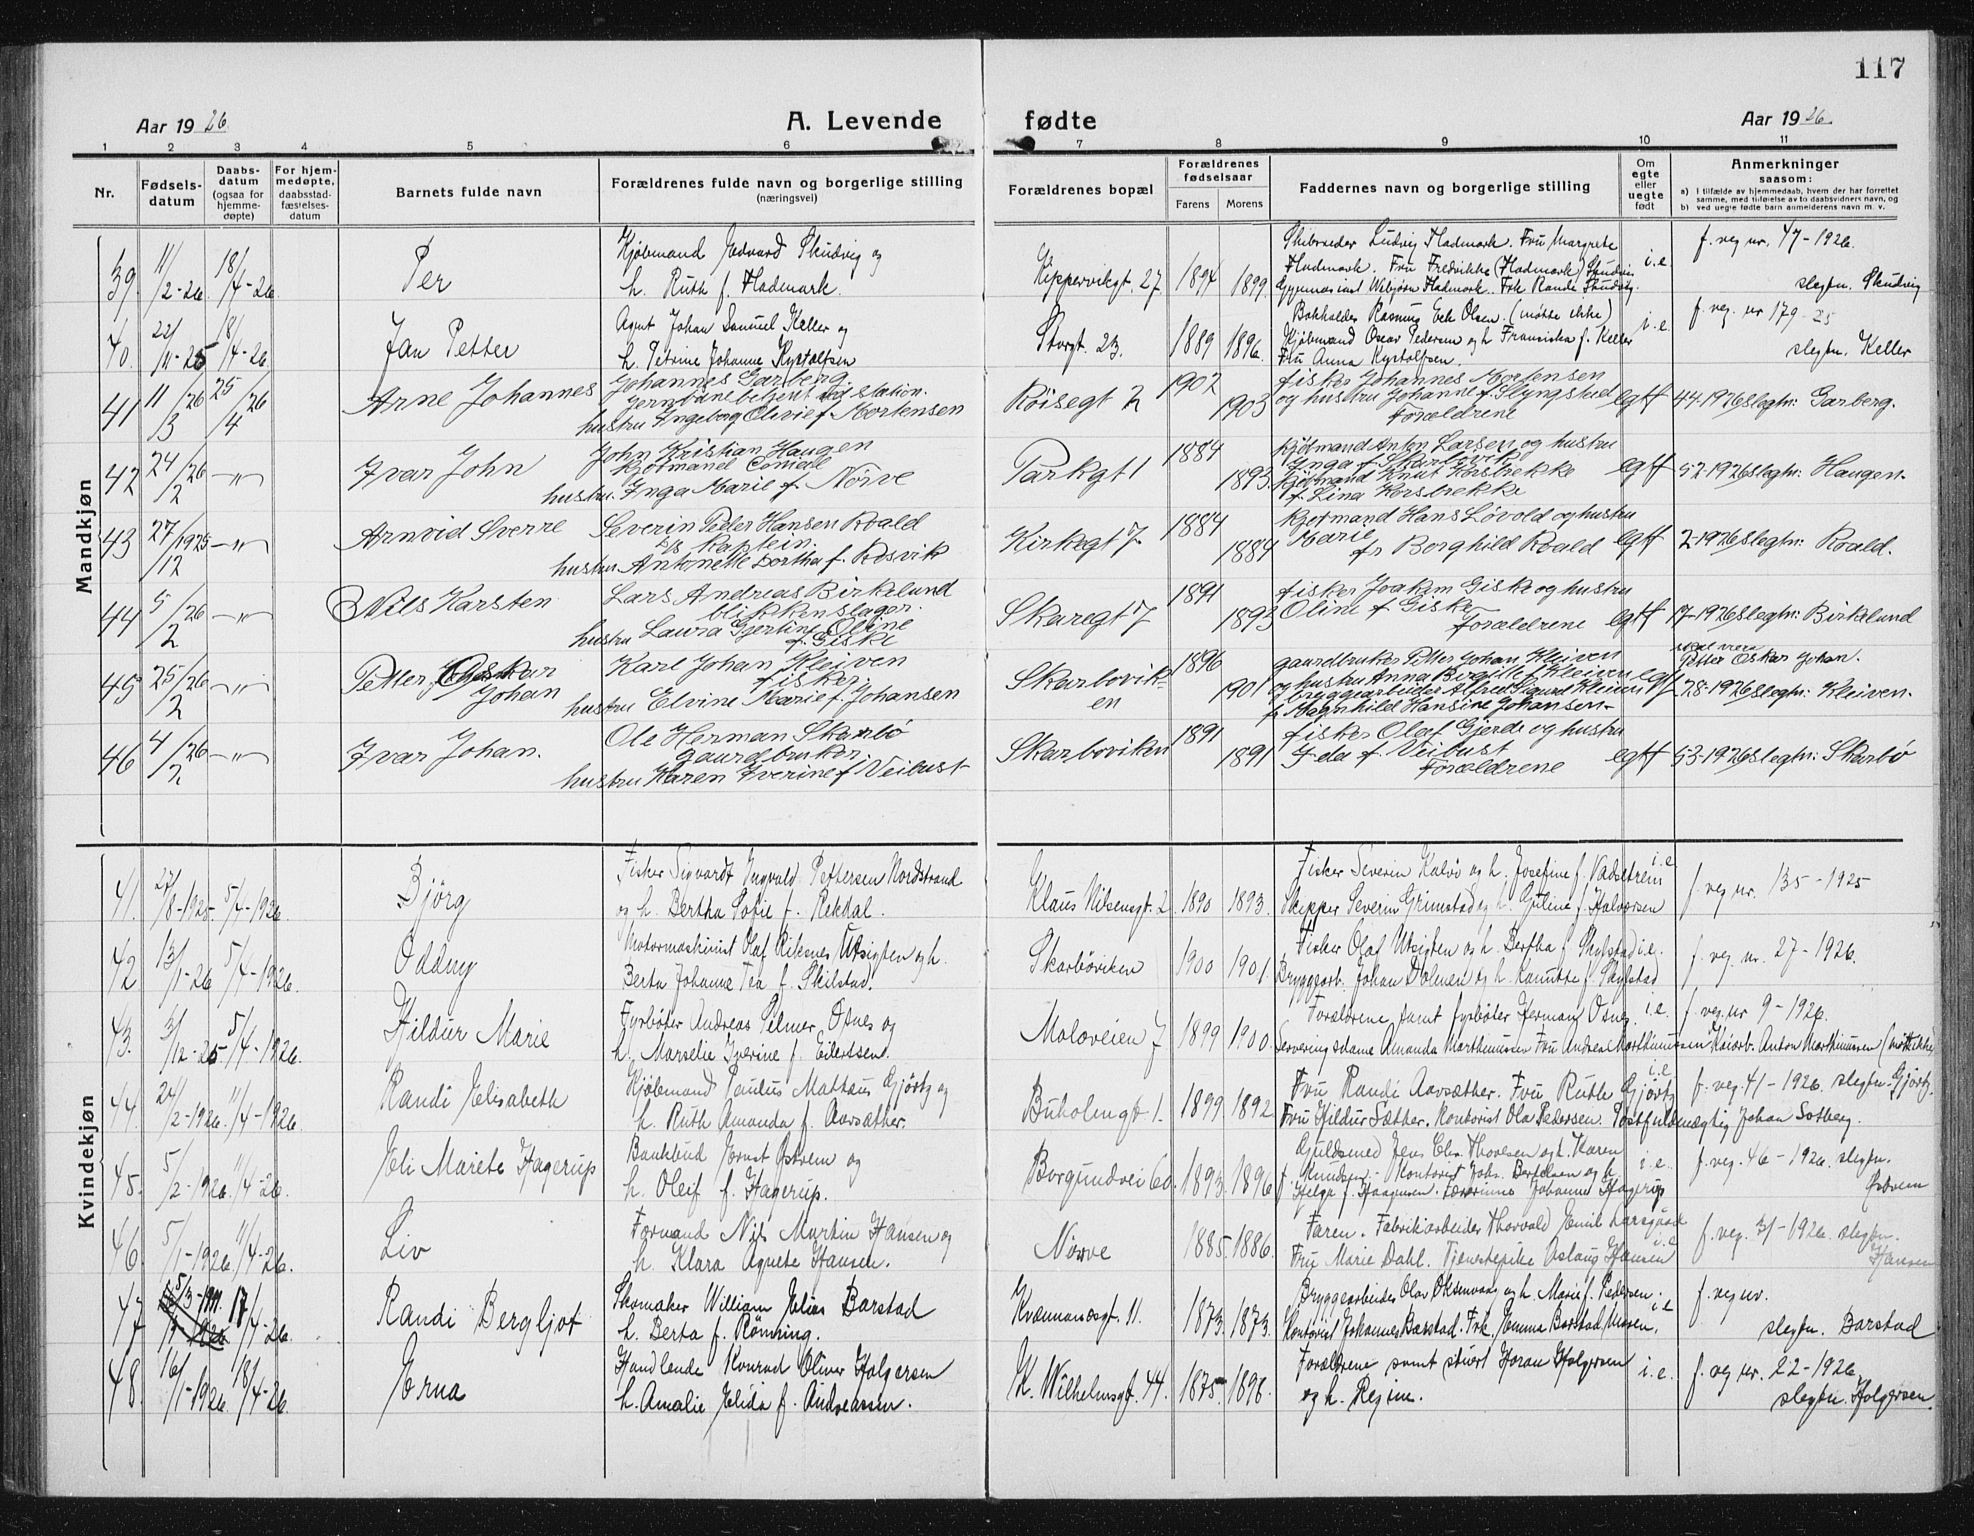 117
Aar 1926
A. Levende fødte
Aar 1926
1 2 3 4 5 6 7 8 9 10 11
Nr.
Fødsels-
datum
Daabs-
datum
(ogsaa for
hjemme-
døpte)
For hjem-
medøpte,
daabsstad-
fæstelses-
datum
Barnets fulde navn
Forældrenes fulde navn og borgerlige stilling
(næringsvei)
Forældrenes bopæl
Forældrenes
fødselsaar
Farens Morens
Faddernes navn og borgerlige stilling
Om
egte
eller
uegte
født
Anmerkninger
saasom:
a) I tilfælde av hjemmedaab, hvem der har forrettet
samme, med tilføielse av to daabsvidners navn, og
b) ved uegte fødte barn anmelderens navn m. v.
Mandkjøn
39. 11/2-26. 18/4-26. Per
Kjøbmand Edvard Skudvig og
h. Ruth f. Fladmark.
Kippervikgt. 27 1894 1899.
Skibsreder Ludvig Fladmark. Fru Margrete
Fladmark. Fru Fredrikke (Fladmark) Skudvig
Fladmark. Frk Randi Skudvig.
i.e.
f. veg nr. 47-1926.
slegtn. Skudvig
40. 22/11-25 18/4-26. Jan Petter
Agent Johan Samuel Keller og
h. Petrine Johanne Kystolfsen
Storgt. 23. 1889 1896.
Bokholder Rasmus Eek Olsen. (møtte ikke)
Kjøbmand Oscar Pedersen og h Franciska f. Keller
Fru Anna Kystolfsen.
i.e.
f. veg. nr 179-25
slegtn. Keller
41 11/3 26 25/4 26 Arne Johannes
Johannes Garberg.
jernbanebetjent ved station.
hustru Ingeborg Olivie f Mortensen
Røisegt 2 1902 1903
fisker Johannes Mortensen
og hustru Johanne f. Slyngstad
Forældrene
egtf
44-1926 slegtn: Garberg.
42 24/2 26 -"- Ivar John
John Kristian Haugen
kjøbmand
hustru Inga Marie f Nørve
Parkgt 1 1884 1893
kjøbmand Anton Larsen og hustru
Inga f. Skarbøvik
kjøbmand Knut Korsbrekke
f. Lina Korsbrekke
egtf
52-1926 slegtn: Haugen-
43 27/12 1925 -"- Arnvid Sverre
Severin Peder Hansen Roald
kaptein.
hustru Antonette Dorthea f. Rosvik
Kirkegt 7. 1884 1884
kjøbmand Hans Løvold og hustru
Marie
fr Borghild Roald
egtf
2-1926 slegtn: Roald.
44 5/2 26 -"- Nils Karsten
Lars Andreas Birkelund
blikkenslager.
hustru Laura Gjertine Oline
f Giske
Skaregt 7 1891 1893
fisker Joakim Giske og hustru
Oline f Giske
Forældrene
egtf
17-1926 slegtn: Birkelund
45 25/2 26 -"- Petter Oskar
Johan
Karl Johan Kleiven
fisker.
hustru Elvine Marie f. Johansen
Skarbøvik-
en
1896 1901
gaardbruker Petter Johan Kleiven
og hustru Anna Birgitte f Kleiven
bryggearbeider Alfred Sigurd Kleiven
f. Magnhild Hansine Johansen-
egtf
skal være
Petter Oskar Johan.
28-1926 slegtn: Kleiven-
46 4/2 26 -"- Ivar Johan.
Ole Herman Skarbø
gaardbruker.
hustru Karen Iverine f Veibust
Skarbøviken 1891 1891
fisker Olaf Gjerde og hustru
Ida f. Veibust
Forældrene
egtf
53-1926 slegtn: Skarbø
Kvindekjøn
41. 27/8-1925. 5/4-1926. Bjørg
Fisker Sigvardt Ingvald Pettersen Nordstrand
og h. Bertha Sofie f. Rekdal.
Klaus Nilsensgt. 2 1890 1893.
Fisker Severin Kalvø og h. Josefine f. Vadstrein
Skipper Severin Grimstad og h. Gjeline f. Halvorsen
i.e.
f. veg nr. 135-1925
42 13/1-26 5/4-1926. Oddny
Motormaskinist Olaf Riksnes Utsigten og h.
Berta Johanne Tea f. Skilstad.
Skarbøviken 1900 1901
Fisker Olaf Utsigten og h. Bertha f Skylstad
Bryggearb. Johan Dalmen og h. Kanutte f. Skylstad
i.e.
f. veg. nr. 27-1926.
43. 3/12-25 5/4-1926. Hildur Marie
Fyrbøter Andreas Pilmer Osnes og
h. Marselie Iverine f. Eilertsen.
Moloveien 7 1899 1900.
Forældrene samt fyrbøter Herman Osnes
Serveringsdame Amanda Marthinussen Fru Andrea Marthinussen Kaiarb. Anton Marthinussen (møtte ikke)
i.e.
f. veg nr 9-1926.
44. 24/2-1926. 11/4-1926. Randi Elisabeth
Kjøbmand Paulus Mattæus Gjørtz og
h. Ruth Amanda f. Aarsæther.
Buholmgt. 1. 1899. 1892
Fru Randi Aarsæther. Fru Ruth Gjørtz
Fru Hildur Sæther. Kontorist Ola Pedersen. Postfuldmægtig Johan Solberg.
i.e
f. veg. 41-1926. slegtn. Gjørtz.
45. 5/2-1926. 11/4-26. Eli Marete Hagerup
Bankbud Ernst Østrem og
h. Oleif f. Hagerup.
Borgundvei 60. 1893. 1896
Gjuldsmed Jens Chr. Thoresen og h. Karen
f. Knudsen. - Kontorist Johs. Bertelsen og h.
Helga f. Haagensen. Lærerinne Johanne Hagerup
i.e.
f. veg. 46-1926. slegtn.
Østrem
46. 5/1-1926. 11/4-26. Liv
Formand Nils Martin Hansen og
h. Klara Agnete Hansen.
Nørve 1885. 1886.
Faren. Fabrikarbeider Thorvald Emil Aarsgaard
Fru Marie Dahl. Tjenestepike Aslaug Hansen
i.e
f. veg. 31-1926. slegtn.
Hansen
47 5/3-1911. 17/4-26. Randi Bergljot
Skomaker William Elias Barstad
h. Berta f. Rømring.
Kvennanesgt. 11. 1873. 1873.
Bryggearbeider Olav Oksenvaag og h. Marie f. Pedersen.
Kontorist Johannes Barstad. Frk. Emma Barstad Nissen.
i.e
f. veg nr.
slegtn. Barstad
48. 16/1-1926. 18/4-26. Erna
Handlende Konrad Oliver Holgersen
h. Amalie Elida f. Andreassen.
K. Wilhelmsgt. 44. 1875- 1896.
Forældrene samt stuert Holgersen
og h. Regine.
i.e.
f. veg nr. 22-1926.
slegtn. Holgersen.